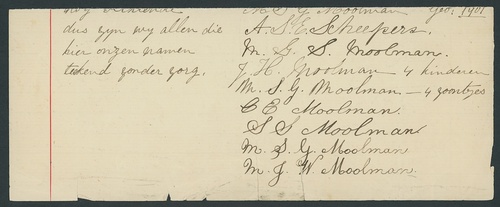 dus zyn wy allen die
hier onzen namen
tekend zonder zorg.
M S G Moolman Geo. 1901
A. S. E. Scheepers.
M. G. S. Moolman.
J. H. Moolman 4 kinderen
M. S. G. Moolman — 4 zoontjes
C E Moolman.
S S Moolman
M. S. G. Moolman
M. J. W. Moolman.